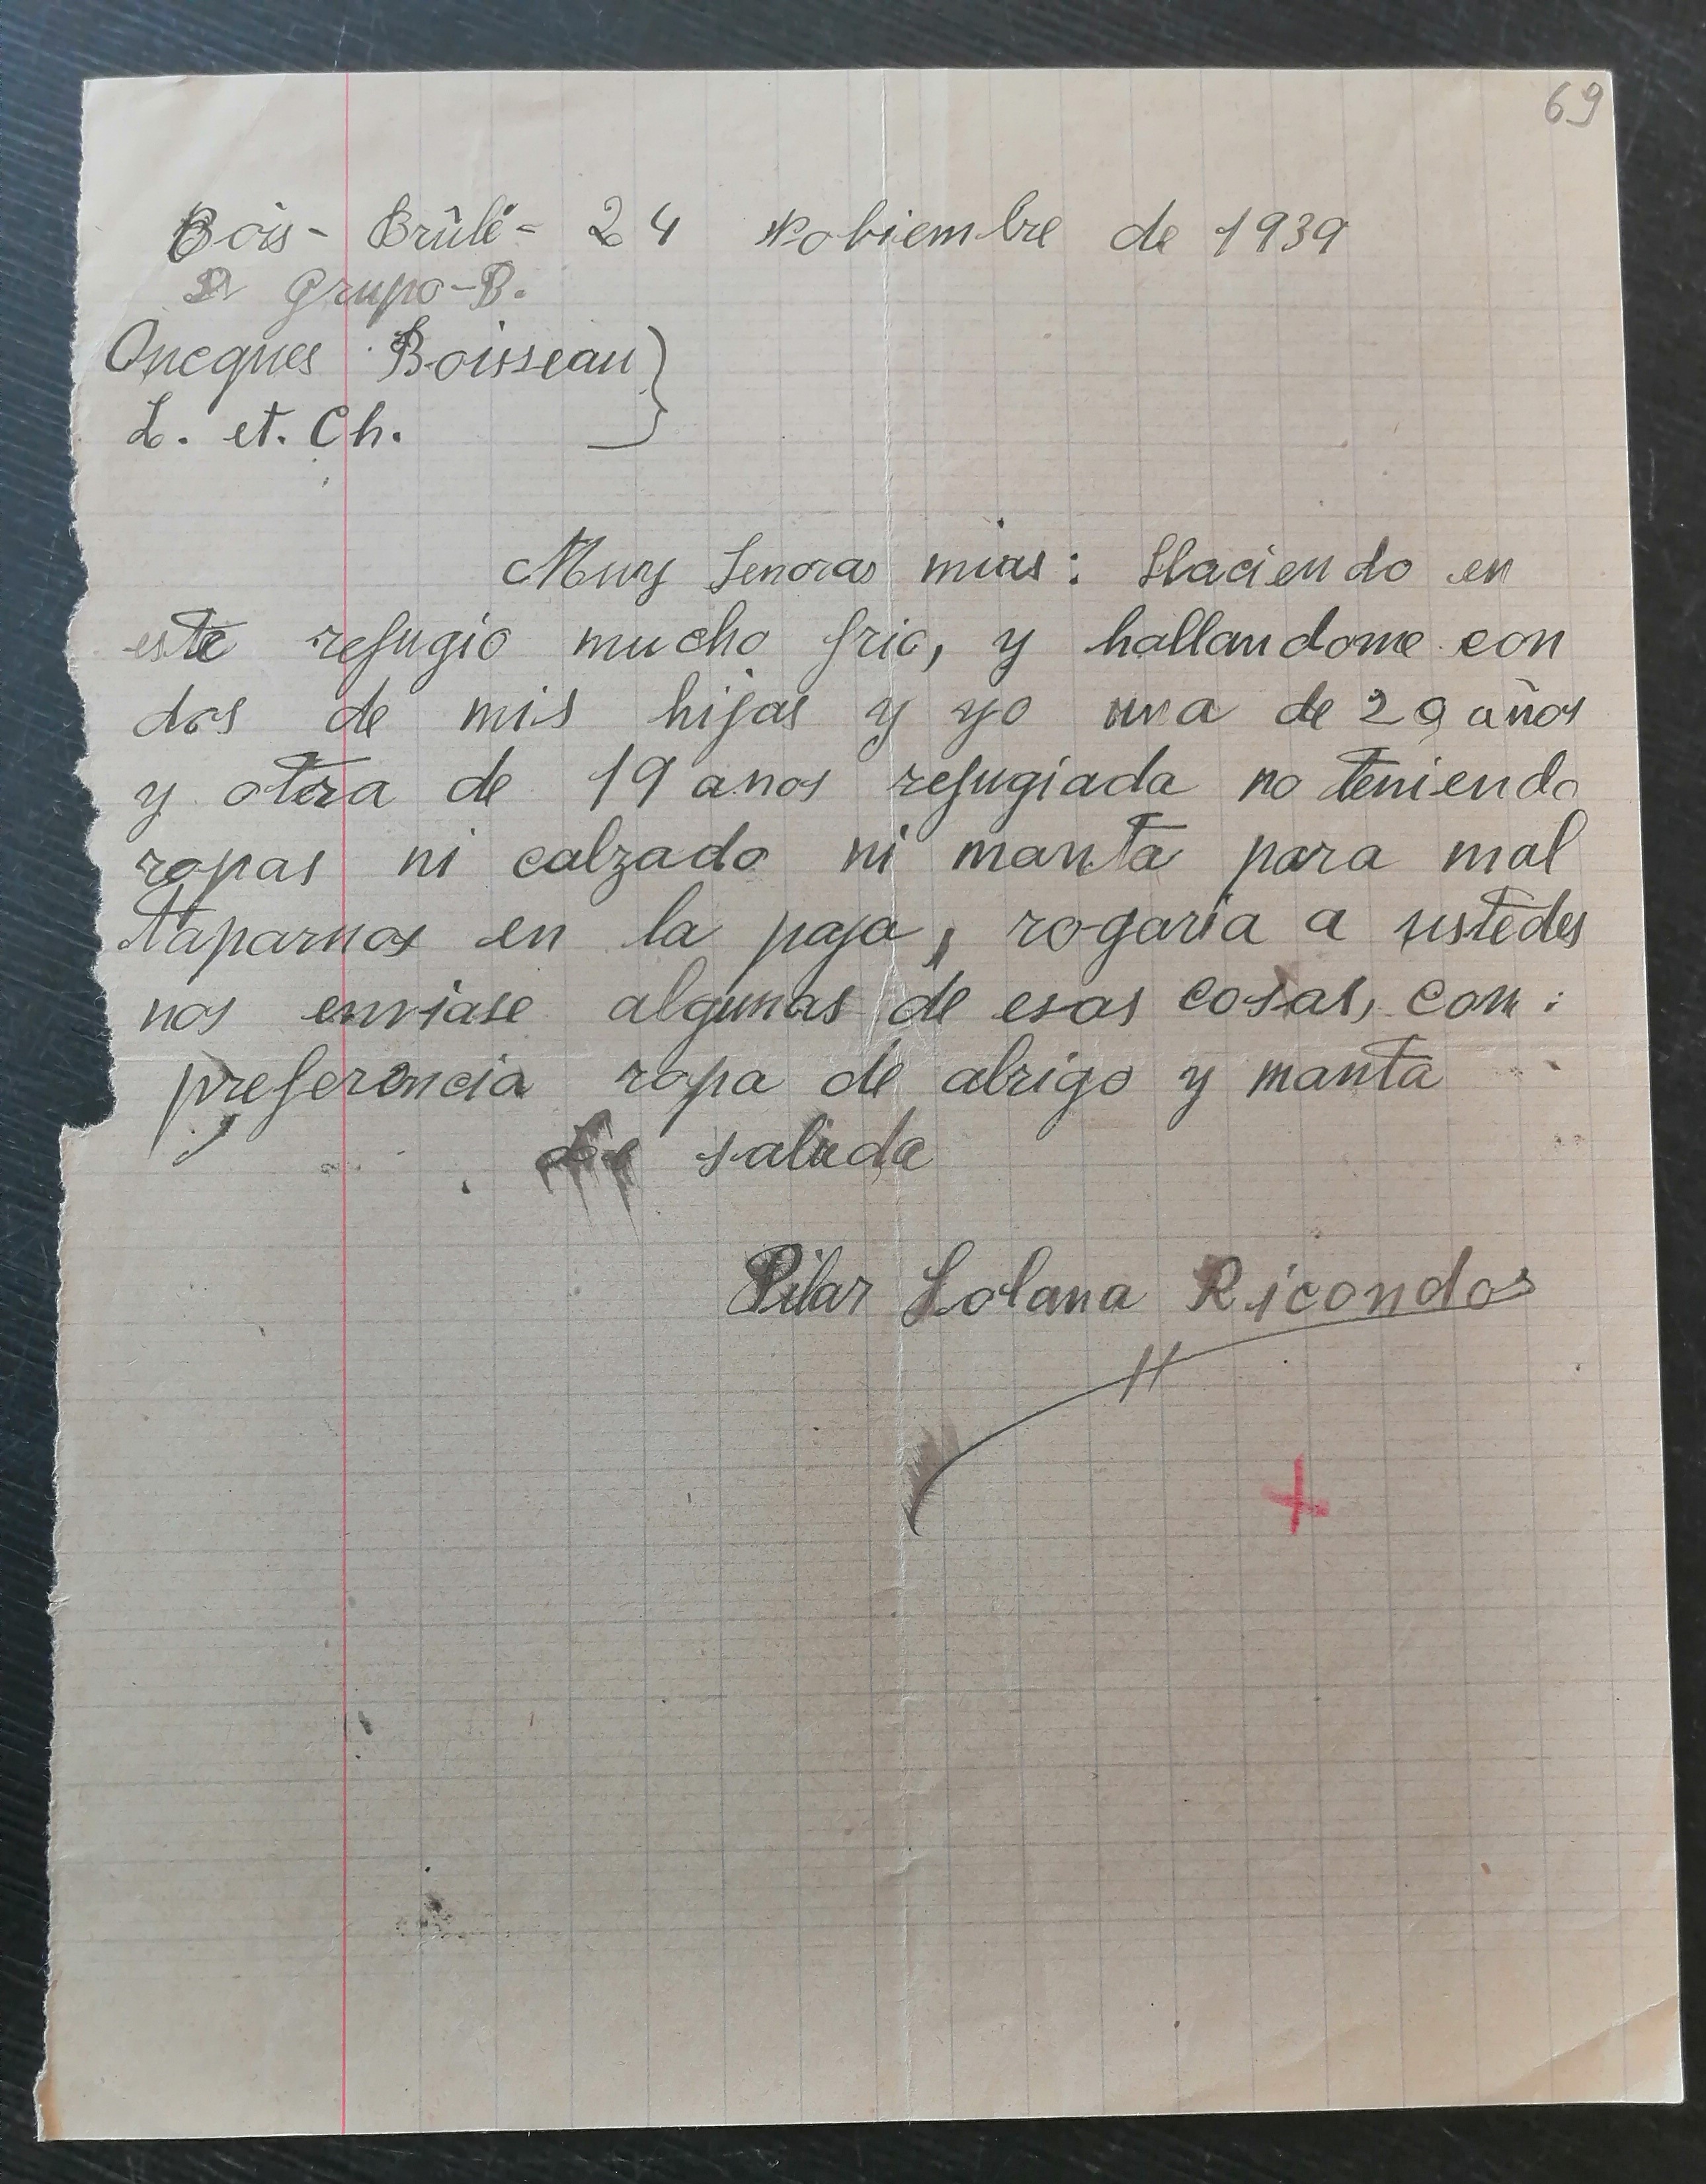 69
Bois-Brûlé- 24 Nobiembre de 1939
Grupo-B.
Oucques Boisseau
L. et. Ch.
Muy Senoras mias: Haciendo en
este refugio mucho frio, y hallandome con
dos de mis hijas y yo una de 29 años
y otra de 19 anos refugiada no teniendo
ropas ni calzado ni manta para mal
taparnos en la paja, rogaria a ustedes
nos enviase algunas de esas cosas, con
preferencia ropa de abrigo y manta
saluda
Pilar Solana Ricondos